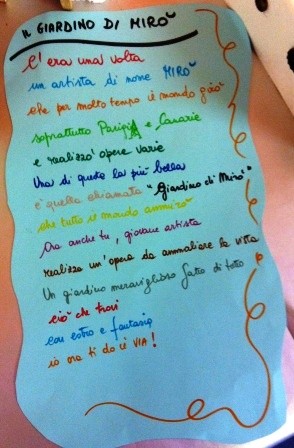 IL GIARDINO DI MIRÒ
C'era una volta
un artista di nome MIRÒ
che per molto tempo il mondo girò
soprattutto Parigi e Canarie
e realizzò opere varie
Una di queste la più bella
è quella chiamata "Giardino di Mirò"
che tutto il mondo ammirò
Ora anche tu, giovane artista
realizza un'opera da ammaliare la vista
Un giardino meraviglioso fatto di tutto
ciò che trovi
con estro e fantasia
io ora ti do il VIA!